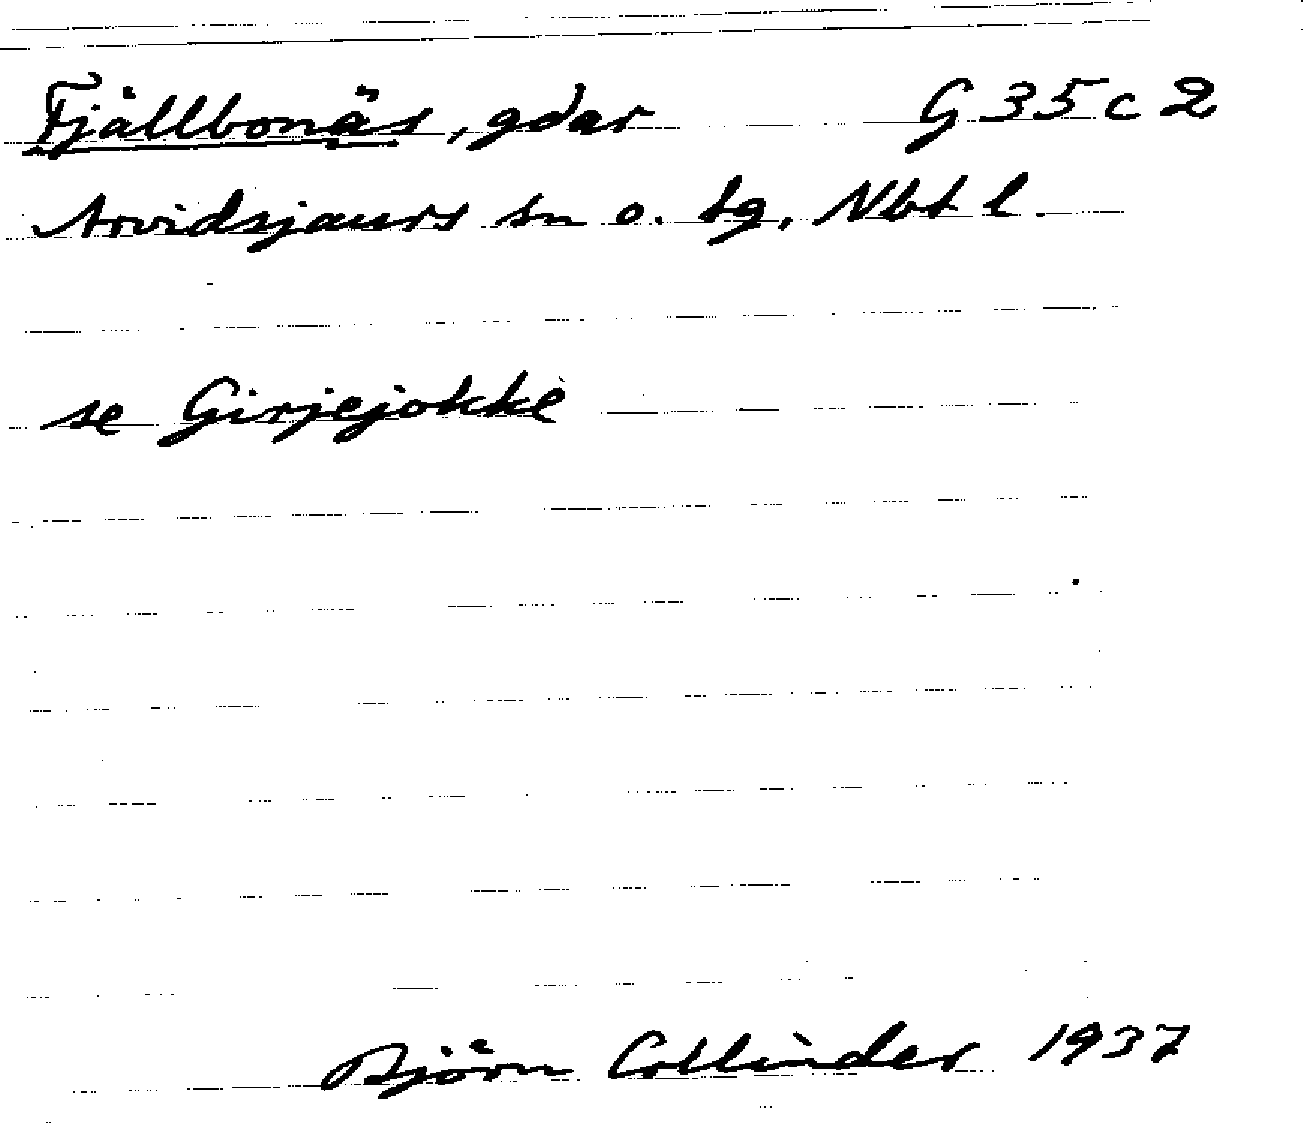 Fjällbonäs, gdar G 35 c 2
Arvidsjaurs sn o. tg, Nbt l.
se Girjejokke
Björn Collinder 1937